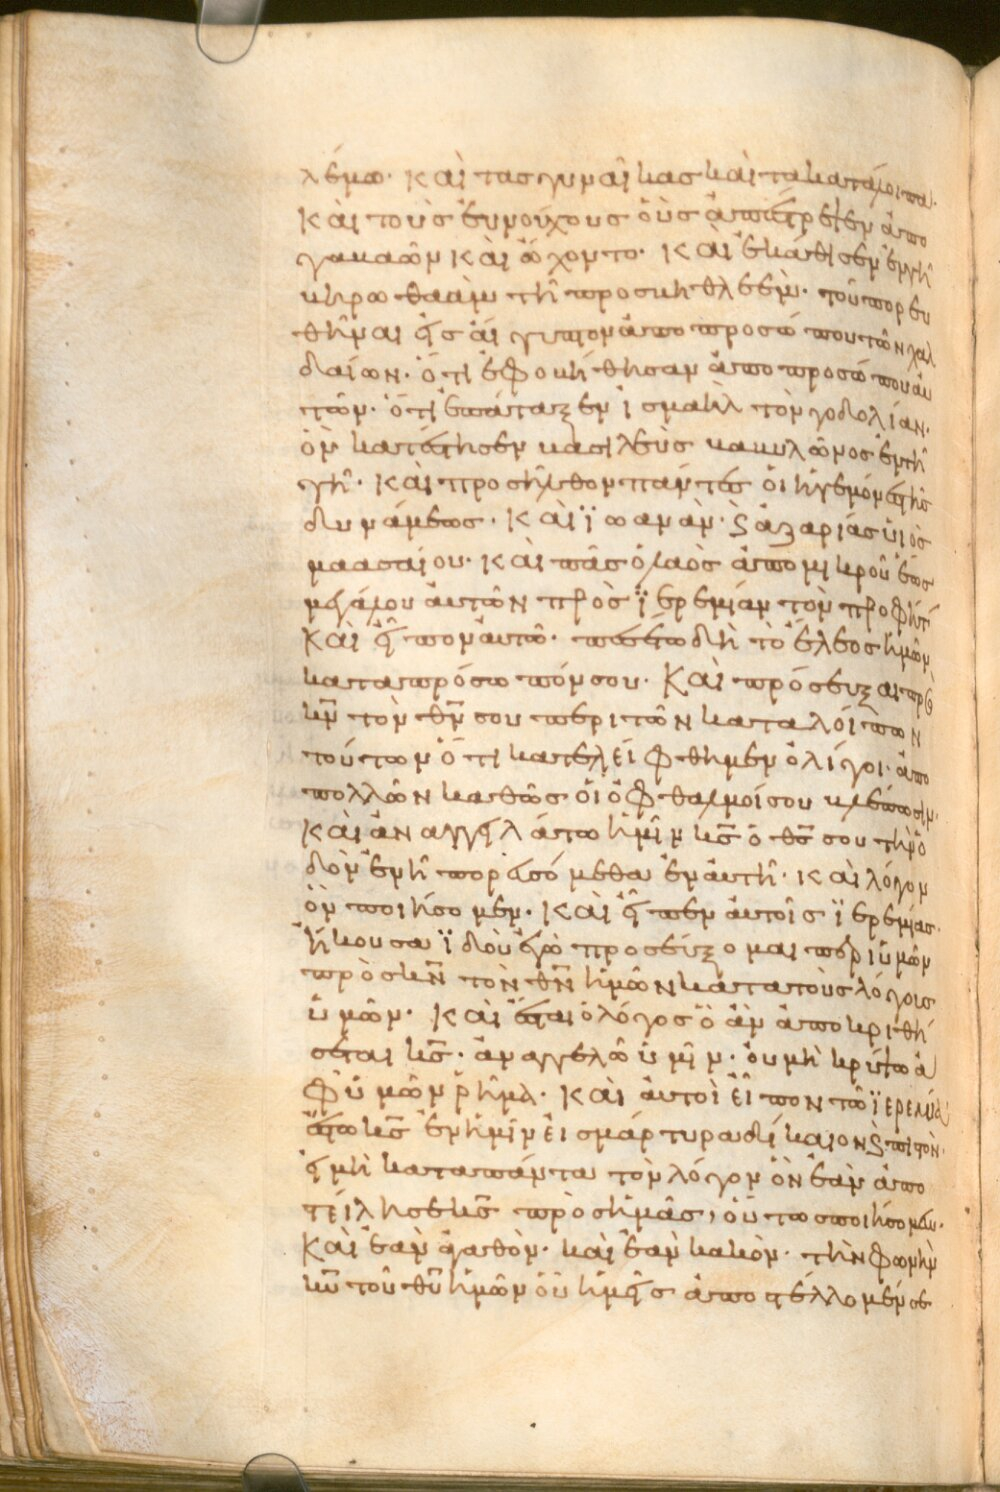 λέμω· καὶ τασ γυναῖκασ καὶ τα κατάλοιπα·
καὶ τοὺσ ἐυνούχουσ οὓσ ἀπέστρεψεν ἀπο
γαβαὼν καὶ ὤχοντο· καὶ ἐκάθισεν ἐν γῆ
βηρωθαὰμ τῆ προσ βηθλεέμ· τοῦ πορευ
θῆναι εἰσ ἀίγυπτον ἀπο προσώπου τῶν χαλ
δαίων· ὅτι ἐφοβήθησαν ἀπο προσώπου ἀυ
τῶν· ὅτι ἐπάταξεν ἰσμαὴλ τὸν γοδολίαν·
ὃν κατέστησεν βασιλεὺσ βαβυλῶνοσ ἐν τῆ
γῆ· καὶ προσῆλθον πάντεσ ὁι ἡγεμόνεσ τῆσ
δυνάμεωσ· καὶ ϊωανὰν· ϛ ἀζαρίασ ὑιὸσ
μαασαίου· καὶ πᾶσ ὁ λαὸσ ἀπο μικροῦ ἕωσ
μεγάλου ἀυτῶν πρὸσ ϊερεμίαν τὸν προφήτ
καὶ εἶπον ἀυτῶ· πεσέτω δὴ τὸ ἔλεοσ ἡμῶν
κατα πρόσωπόν σου· Καὶ πρόσευξαι πρὸ
κν τὸν θν σου περι τῶν καταλόιπων
τούτων ὅτι κατελείφθημεν ὀλίγοι· ἀπο
πολλῶν καθὼσ ὁι ὀφθαλμοί σου βλέπουσιν·
καὶ ἀναγγειλάτω ἡμῖν κσ ὁ θσ σου τὴν ὁ
δὸν ἐν ἧ πορευσόμεθα ἐν ἀυτῆ· καὶ λόγον
ὃν ποιήσομεν· καὶ εἶπεν ἀυτοῖσ ϊερεμίασ·
ἤκουσα ϊδοὺ ἐγὼ προσεύξομαι περι ὑμῶν
πρὸσ κν τὸν θν ἡμῶν κάτα τοὺσ λόγουσ
ὑμῶν· καὶ ἔσται ὁ λόγοσ ὃ ἂν ἀποκριθή
σεται κσ· ἀναγγελῶ ὑμῖν· ὀυ μὴ κρύψω ἀ
φ ὑμῶν ρῆμα· καὶ ἀυτοὶ εἶπον τῶ ϊερεμία
ἔστω κσ ἐν ἡμῖν ἐισ μάρτυρα δίκαιον ϛ πιστὸν·
εἰ μὴ κατα πάντα τὸν λόγον ὃν ἐὰν ἀπο
τείλησε κσ πρὸσ ἡμᾶσ, ὅυτωσ ποιήσομεν·
καὶ ἐὰν ἀγαθὸν· καὶ ἐὰν κακὸν· τὴν φωνὴν
κυ τοῦ θυ ἡμῶν ὅυ ἡμεῖσ ἀποστέλλομέν σε